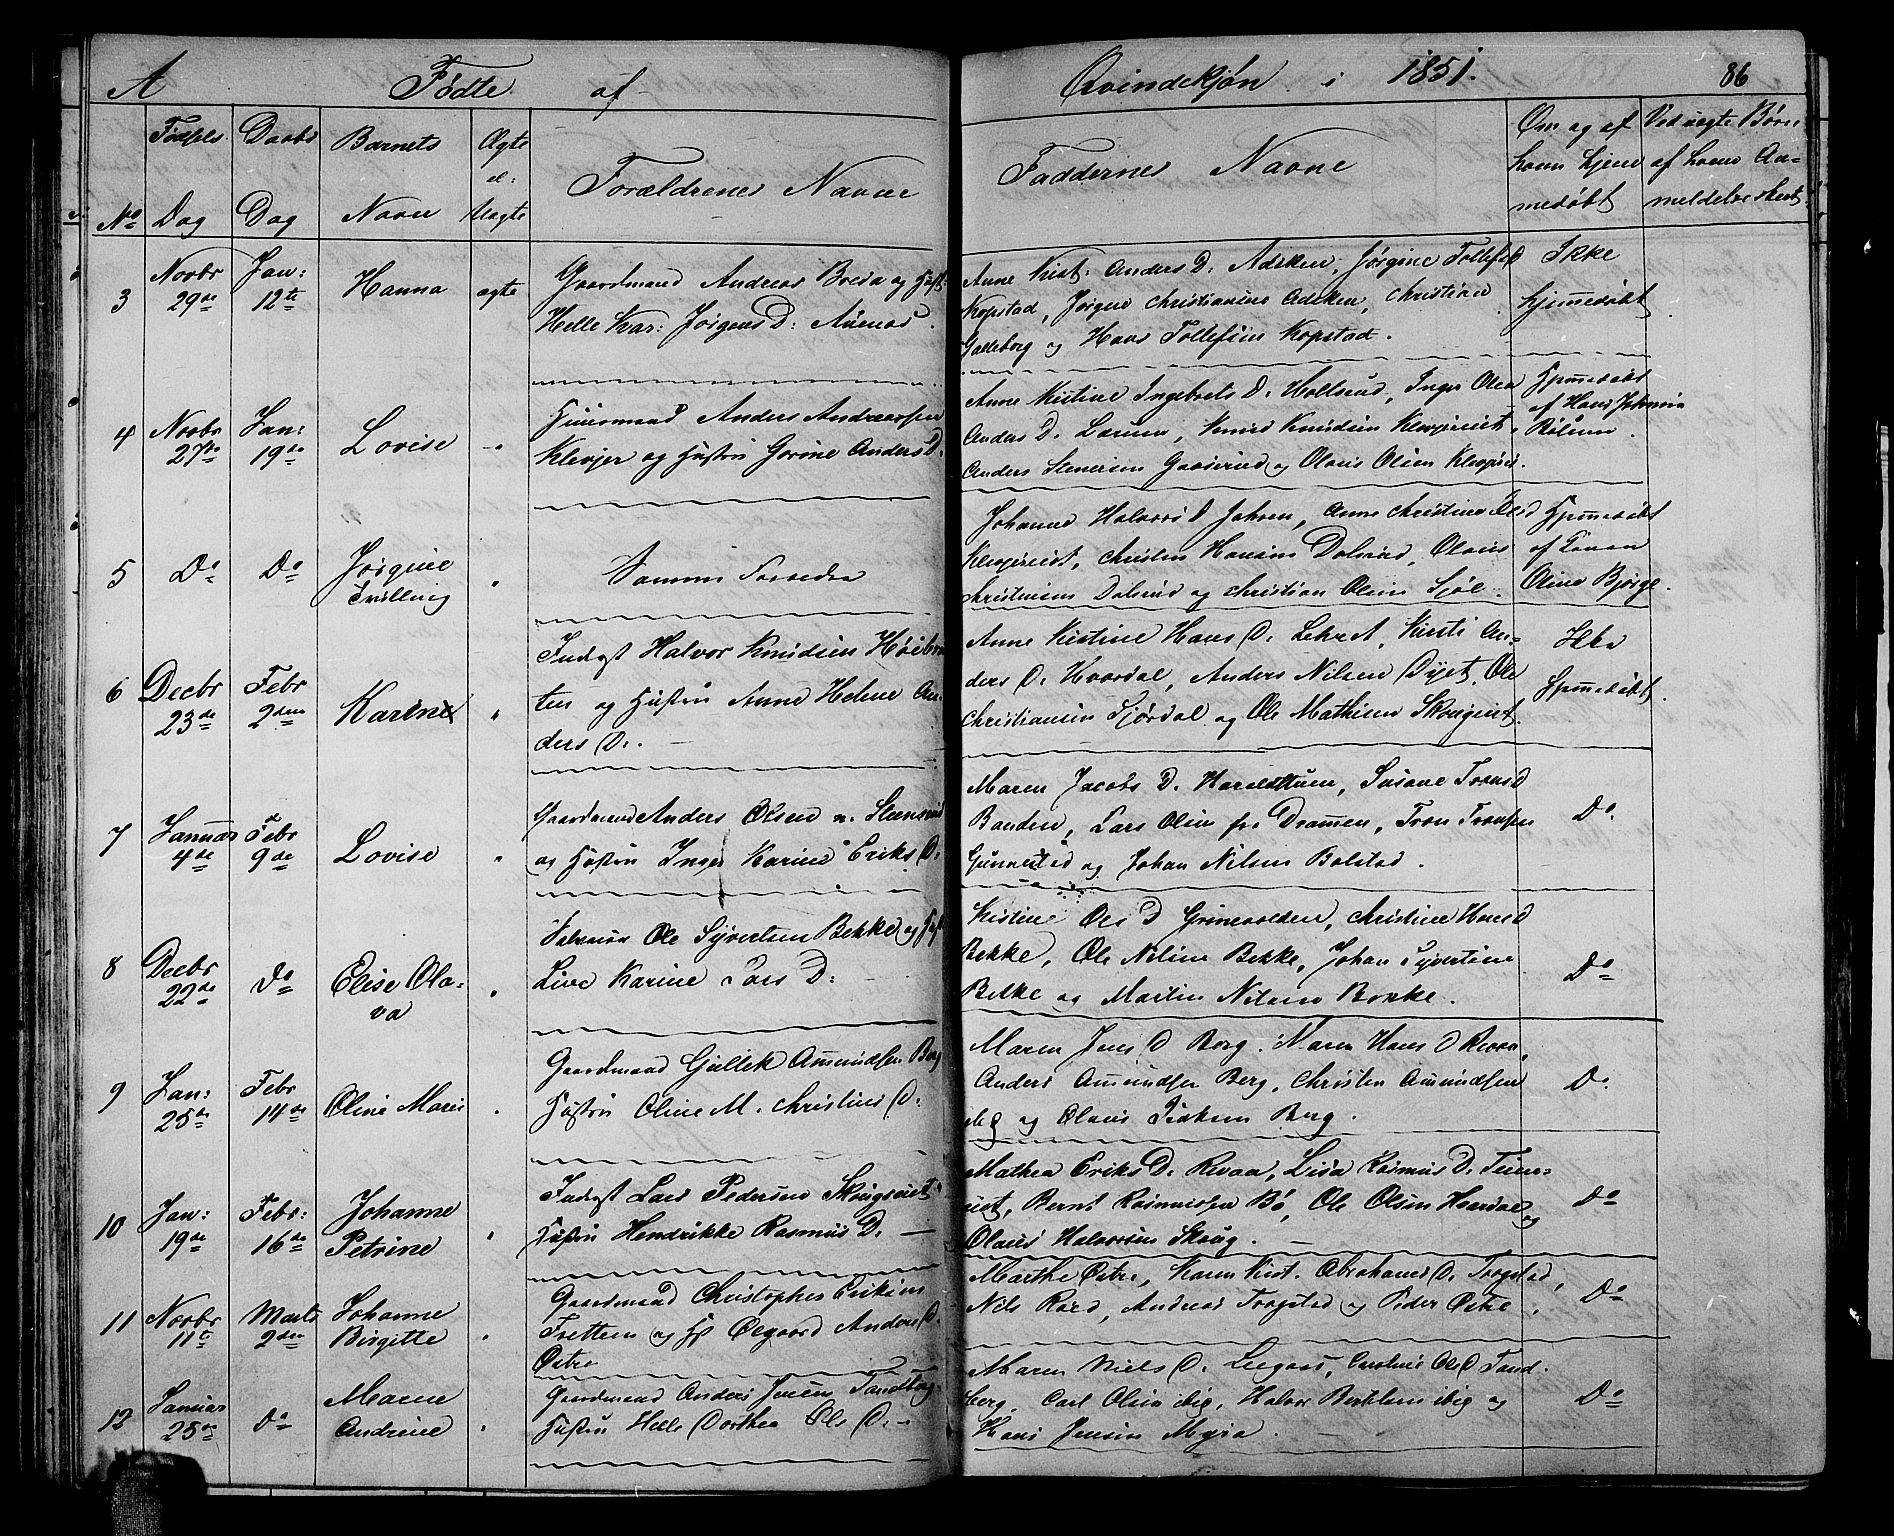 A Fødte af Qvindekjøn i 1851. 86
No Fødsels Dag Daabs Dag Barnets Navn Ægte el: Uægte Forældrenes Navne Faddernes Navne Om og af hvem hjemmedøbt Ved uægte Børn af hvem Anmeldelse skeet
3 Novbr 29de Jan: 12te Hanna ægte
Gaardmand Andreas Breda og Hust:
Helle Kar: Jørgens D: Auenæs.
Anne Krist: Anders D. Adsken, Jørgine Tollefs D
Kopstad, Jørgen Christianine Adsken, Christian
Galleberg og Hans Tollefsen Kopstad.
Ikke
hjemmedøbt
4 Novbr 27de Jan: 19de Lovise "
Huusmand Anders Andreassen
Klevjer og Hustru Gorine Anders D.
Anne Kistine Ingebrets D. Holtsrud, Inger Olea
Anders D. Laruen, Knud Knudsen Klevjeriet,
Anders Stenersen Gaaserud og Olaus Olsen Klevjeriet.
Hjemmedøbt
af Hans Johansen
5 Do Do Jørgine
Tvilling "
Samme Forældre
Johanne Halvors D Jahren, Anne Christine Ols D
Klevjeriet, Christen Hansen Dalsrud, Olaus
Christensen Dalsrud og Christian Olsen Sjøl.
Hjemmedøbt
af Konen
Oline Bjerge.
6 Decbr 23de Febr 2den Karine "
Inderst Halvor Knudsen Høibraa-
ten og Hustru Anne Helene An-
ders D. —
Anne Kistine Hans D. Lehra, Kirsti An-
ders D. Hvardal, Anders Nilsen Dyet, Ole
Christiansen Fjordal og Ole Mathisen Skougriet.
Ikke
hjemmedøbt
7 Januar 4de Febr 9de Lovise "
Gaardmand Anders Olsen n. Steensrud
og Hustru Inger Karine Eriks D.
Maren Jacobs D. Haraldstuen, Susane Trons D
Banden, Lars Olsen fra Drammen, Tron Tronsen
Gunnestad og Johan Nilsen Bolstad.
Do
8 Decbr 22de Do Elise Ola-
va "
Ole Syvertsen Bekke og Hust
Live Karine Lars D.
Kistine Ols D Grinevolden, Christine Hans D
Bekke, Ole Nilsen Bekke, Johan Syvertsen
Bekke og Martin Nilsen Bekke.
Do
9 Jan: 25de Febr 14de Oline Marie "
Gaardmand Gullek Amundsen Berg
Hustru Oline M. Christens D.
Maren Jens D Berg. Maren Hans D Revaa,
Anders Amundsen Berg, Christen Amundsen
ibg og Olaus Isaksen Berg.
Do
10 Jan: 19de Febr: 16de Johanne
Petrine "
Inderst Lars Pedersen Skougriet
Hustru Hendrikke Rasmus D. —
Mathea Eriks D. Revaa, Lisa Rasmus D. Teien-
riet, Bernt Rasmussen Bø, Ole Olsen Hvardal og
Olaus Halvorsen Skoug.
Do
11 Novbr 11te Marts 2den Johanne
Birgitte "
Gaardmand Christopher Eriksen
Fretteim og H. Olgaard Anders D.
Østre
Marthe Østre, Karen Krist. Abrahams D. Trogstad,
Nils Rørd, Andreas Trogstad og Peder Østre.
Do
12 Januar 25de Do Maren
Andrine "
Gaardmand Anders Jensen Tandberg
Hustru Helle Dorthea Ols D. —
Maren Niels D. Leegaard, Caroline Ols D Tand-
berg. Carl Olsen ibig, Halvor Bertelsen ibig og
Hans Jensen Myra.
Do